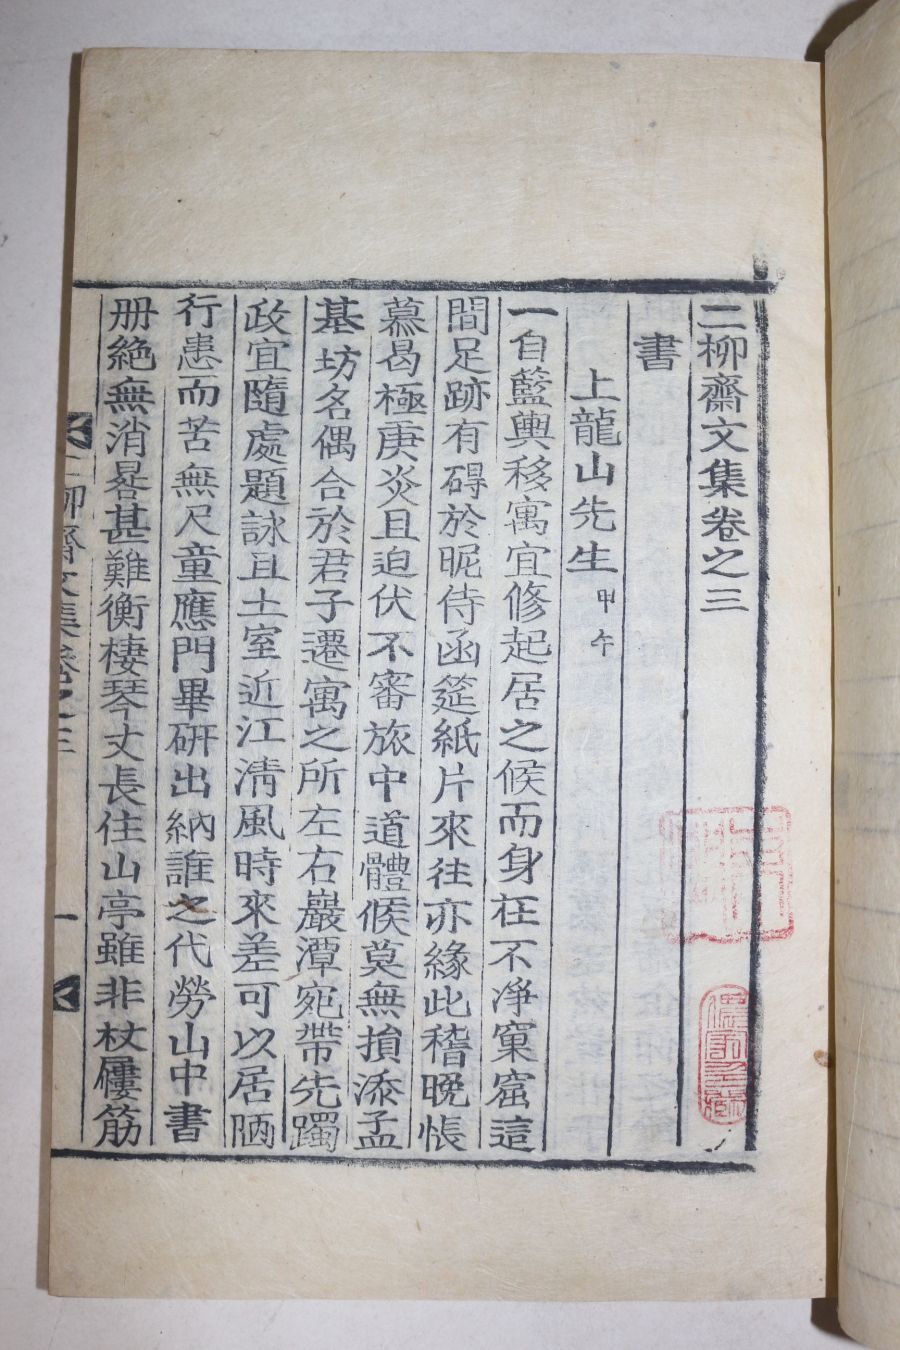 二柳齋文集卷之三
書
上龍山先生 甲午
一自籃輿移寓宜修起居之候而身在不淨窠窟這
間足跡有碍於昵侍函筵紙片來往亦緣此稽晩悵
慕曷極庚炎且迫伏不審旅中道體候莫無損添孟
基坊名偶合於君子遷寓之所左右巖潭宛帶先躅
政宜隨處題詠且土室近江淸風時來差可以居陋
行患而苦無尺童應門畢硏出納誰之代勞山中書
册絶無消晷甚難衡棲琴丈長住山亭雖非杖屨筋
二柳齋文集卷之三
一